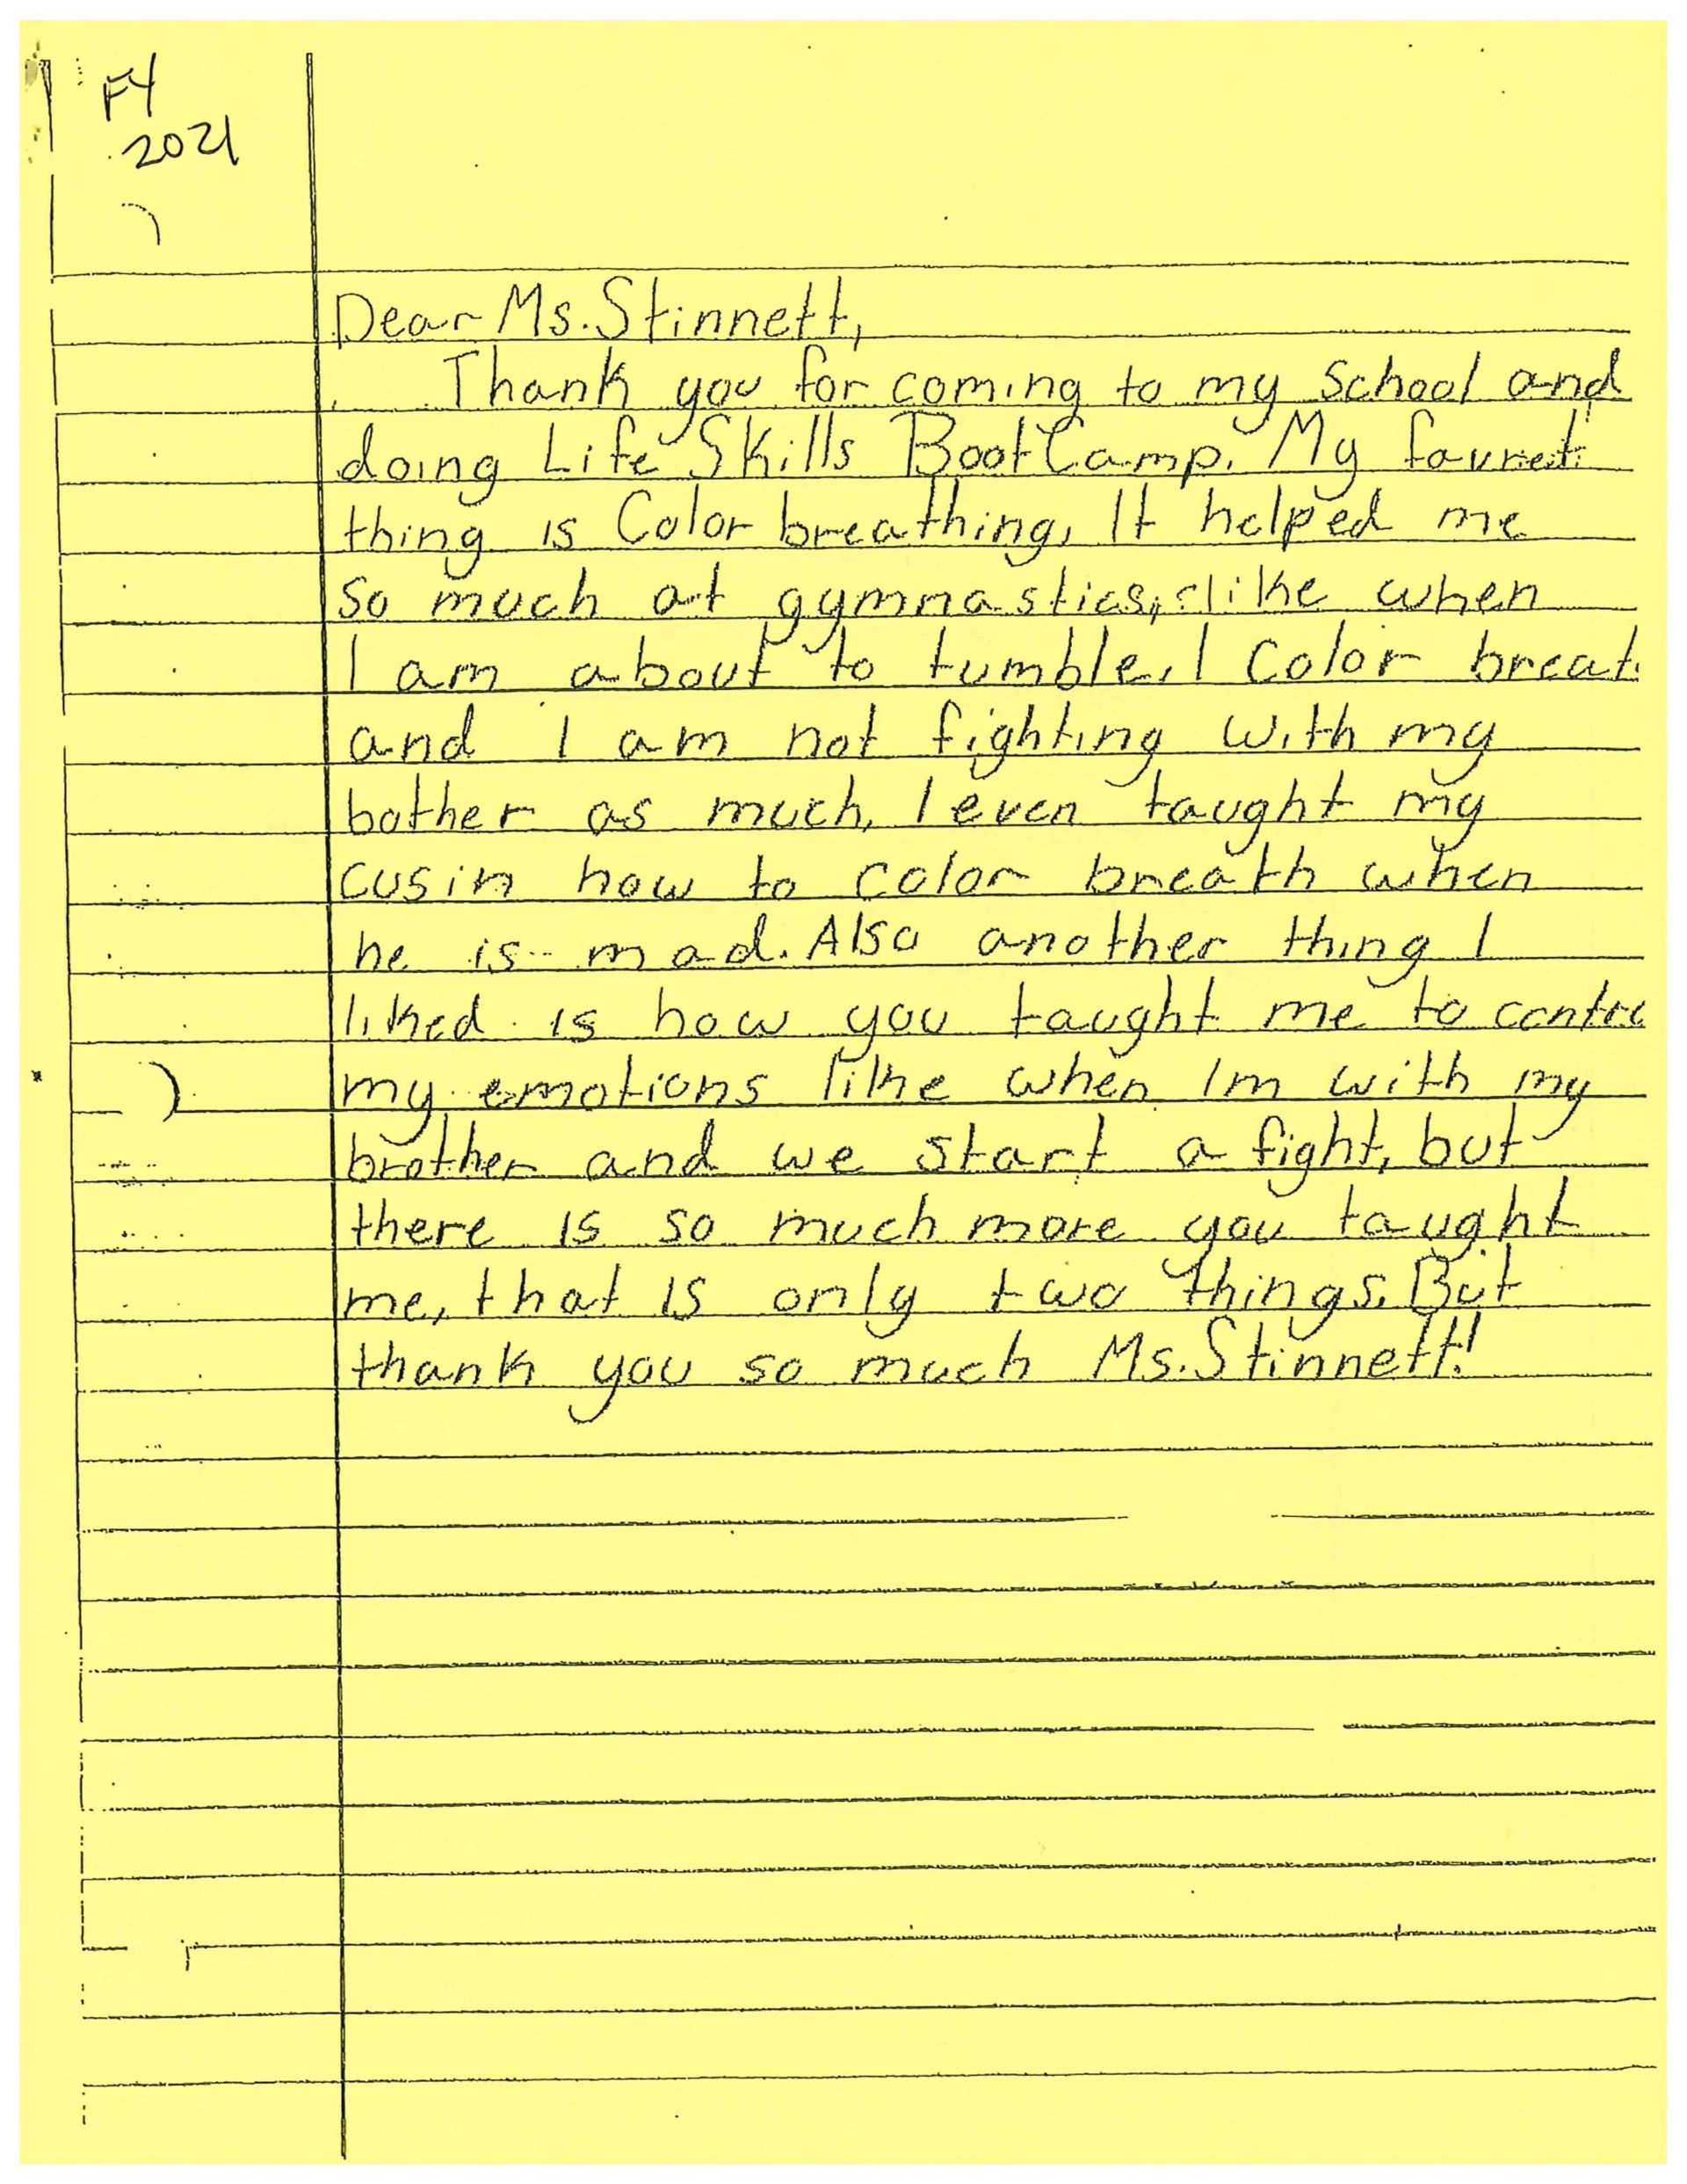 FY
2021
Dear Ms. Stinnett,
Thank you for coming to my school and
doing Life Skills BootCamp. My
thing is Color breathing, It helped me
so much at gymnastics, like when
I am about to tumble, I color breat
and I am not fighting with my
bother as much, I even taught my
cusin how to color breath when
he is mad. Also another thing I
liked is how you taught me to contro
my emotions like when Im with my
brother and we start a fight, but
there is so much more you taught
me, that is only two things. But
thank you so much Ms. Stinnett!